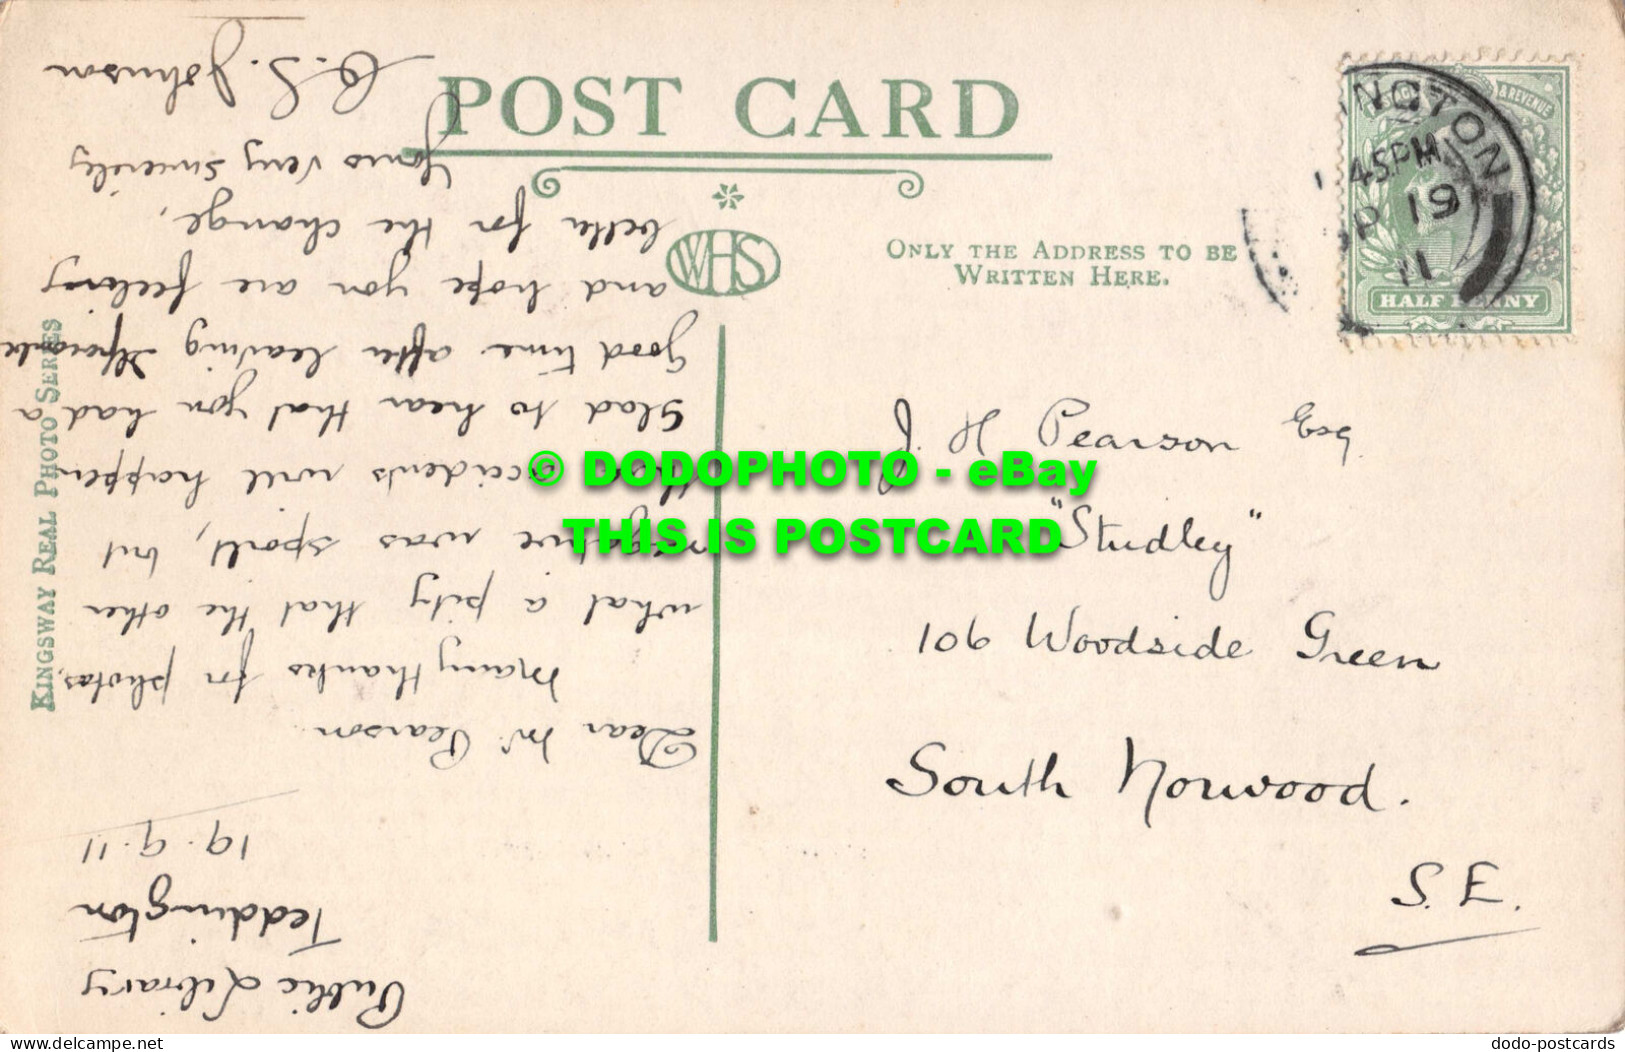 POST CARD
WHS
ONLY THE ADDRESS TO BE
WRITTEN HERE.
KINGSWAY REAL PHOTO SERIES
POSTAGE & REVENUE
HALF PENNY
NGTON
45PM
P 19
11
J. H Pearson Esq.
"Studley"
106 Woodside Green
South Norwood.
S. E.
Public Library
Teddington
19.9.11
Dear Mr Pearson
Many thanks for photos,
what a pity that the other
negative was spoilt, but
accidents will happen
Glad to hear that you had a
good time after leaving Ilfracombe
and hope you are feeling
better for the change,
Yours very sincerely
S. Johnson
© DODOPHOTO - eBay
THIS IS POSTCARD
www.delcampe.net
dodo-postcards